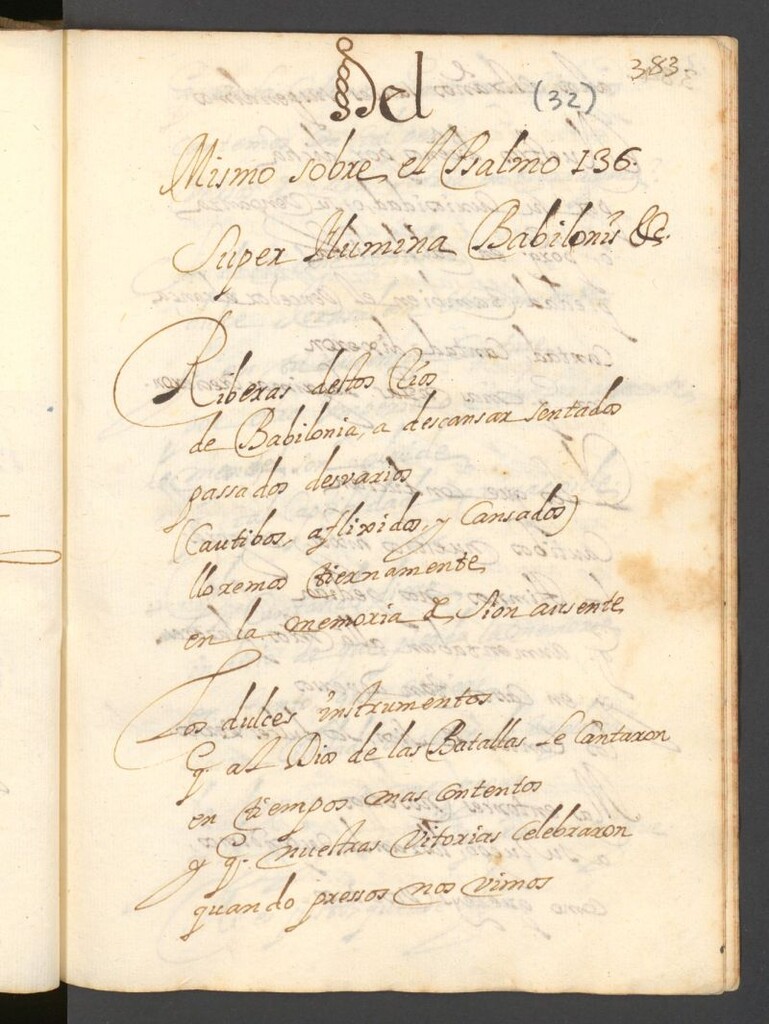 383.
Del (32)
Mismo sobre el Psalmo 136.
Super Flumina Babilonis &c.
Riberas destos Rios
de Babilonia, a descansar sentados
passados desvarios
(Cautibos, aflixidos, y Cansados)
lloremos tiernamente
en la memoria de Sion ausente
Los dulces instrumentos
q. al Dios de las Batallas se Cantaron
en tiempos mas Contentos
y q. nuestras Vitorias Celebraron
quando pressos nos vimos